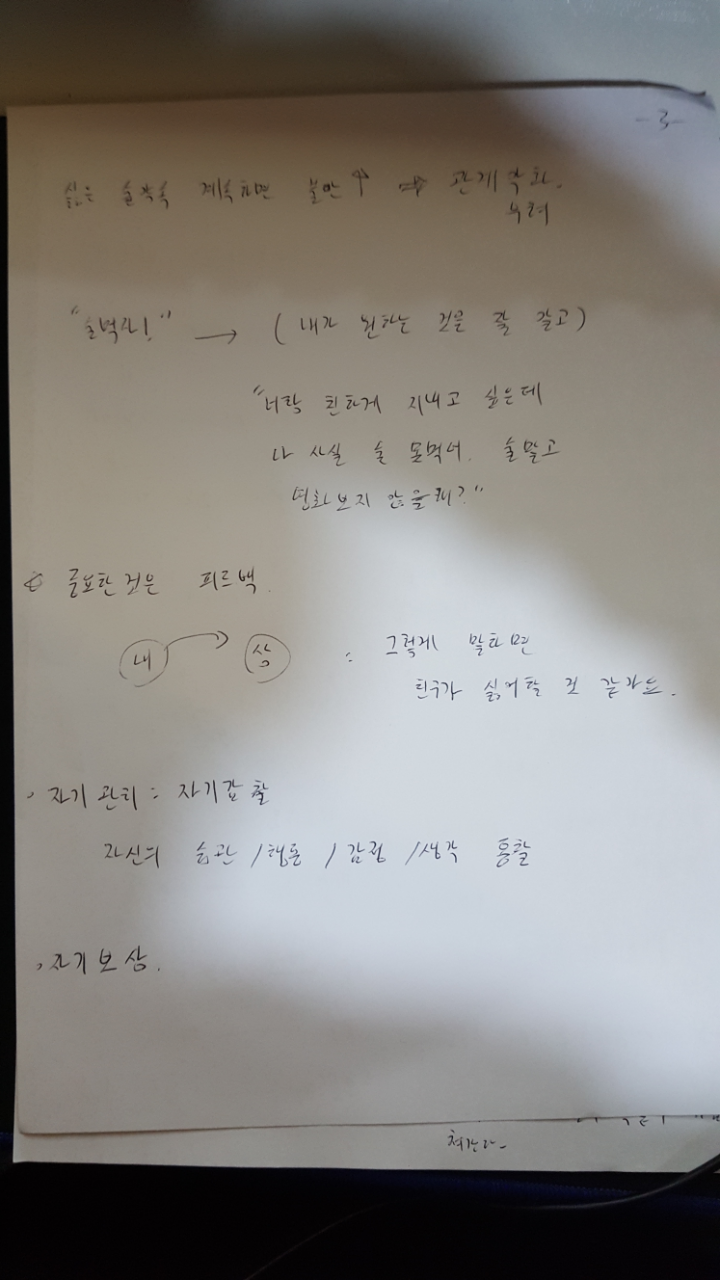 -3-
싫은 술약속 계속하면 불만↑ ⇒ 관계악화.
우려
"술먹자!" → (내가 원하는 것을 잘 알고)
"너랑 친하게 지내고 싶은데
나 사실 술 못먹어. 술말고
영화보지 않을래?"
중요한것은 피드백.
내 → 상 : 그렇게 말하면
친구가 싫어할 것 같아요.
, 자기관리 : 자기감찰
자신의 습관 / 행동 / 감정 / 생각 통찰
, 자기보상.